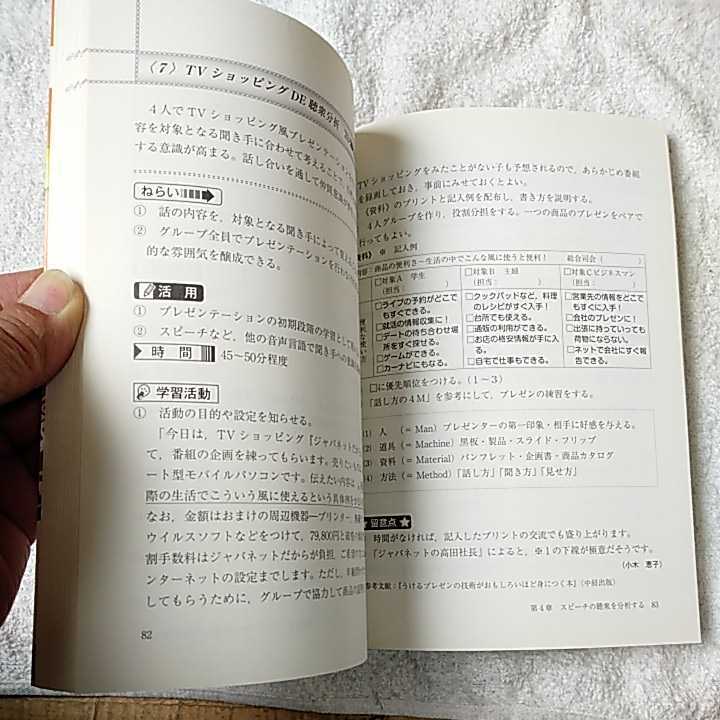 〈7〉 TVショッピングDE聴衆分析
4人でTVショッピング風プレゼンテーション
容を対象となる聞き手に合わせて考えることで、
する意識が高まる。話し合いを通して仲間意識
ねらい
① 話の内容を，対象となる聞き手によって
② グループ全員でプレゼンテーションを
的な雰囲気を醸成できる。
活用
① プレゼンテーションの初期段階の学習として
② スピーチなど，他の音声言語で聞き手への
時間 45〜50分程度
学習活動
① 活動の目的や設定を知らせる。
「今日は，TVショッピング『ジャパネット
て，番組の企画を練ってもらいます。売りたいもの
ート型モバイルパソコンです。伝えたい内容は
際の生活でこういう風に使えるという具体例
なお，金額はおまけの周辺機器―プリンター，
ウイルスソフトなどをつけて，79,800円と
割手数料はジャパネットだからが負担，
ンターネットの設定までします。ただし，
してもらうために，グループで協力して商品の
82
TVショッピングをみたことがない子も予想されるので，あらかじめ番組
を録画しておき，事前にみせておくとよい。
《資料》のプリントと記入例を配布し，書き方を説明する。
4人グループを作り，役割分担をする。一つの商品のプレゼンをペアで
行ってもよい。
資料》 ※ 記入例
商品の便利さ―生活の中でこんな風に使うと便利！ 総合司会（ ）
□対象A 学生 □対象B 主婦 □対象Cビジネスマン
（担当： ） （担当： ） （担当： ）
□ライブの予約がどこで
もすぐできる。
□就活の情報収集に！
□デートの待ち合わせ場
所をすぐ探せる。
□ゲームができる。
□カーナビにもなる。
□クックパッドなど，料理
のレシピがすぐ入手！
□台所でも使える。
□通販の利用ができる。
□お店の格安情報が手に入
る。
□自宅で仕事もできる。
□営業先の情報をどこで
もすぐに入手！
□会社のプレゼンに！
□出張に持っていっても
荷物にならない。
□ネットで会社にすぐ報
告できる。
□に優先順位をつける。（1〜3）
「話し方の4M」を参考にして，プレゼンの練習をする。
(1) 人 （＝ Man）プレゼンターの第一印象・相手に好感を与える。
(2) 道具（＝ Machine）黒板・製品・スライド・フリップ
(3) 資料（＝ Material）パンフレット・企画書・商品カタログ
(4) 方法（＝ Method）「話し方」「聞き方」「見せ方」
★留意点★
時間がなければ，記入したプリントの交流でも盛り上がります。
「ジャパネットの高田社長」によると，※1の下線が極意だそうです。
（小木 恵子）
参考文献：『うけるプレゼンの技術がおもしろいほど身につく本』（中経出版）
第4章 スピーチの聴衆を分析する 83